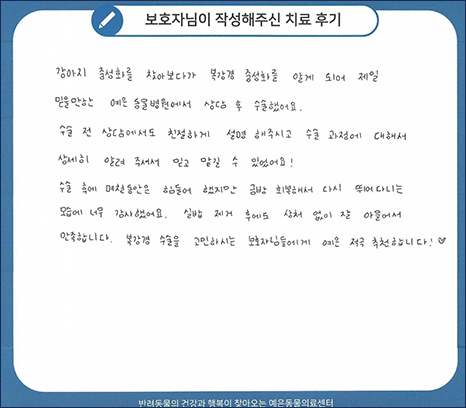 보호자님이 작성해주신 치료 후기
강아지 중성화를 찾아보다가 복강경 중성화를 알게 되어 제일
믿을만하는 예은 동물병원에서 상담 후 수술했어요.
수술 전 상담에서도 친절하게 설명 해주시고 수술 과정에 대해서
상세히 알려 주셔서 믿고 맡길 수 있었어요!
수술 후에 며칠동안은 힘들어 했지만 금방 회복해서 다시 뛰어다니는
모습에 너무 감사했어요. 실밥 제거 후에도 상처 없이 잘 아물어서
만족합니다. 복강경 수술을 고민하시는 보호자님들에게 예은 적극 추천합니다! ♡
반려동물의 건강과 행복이 찾아오는 예은동물의료센터